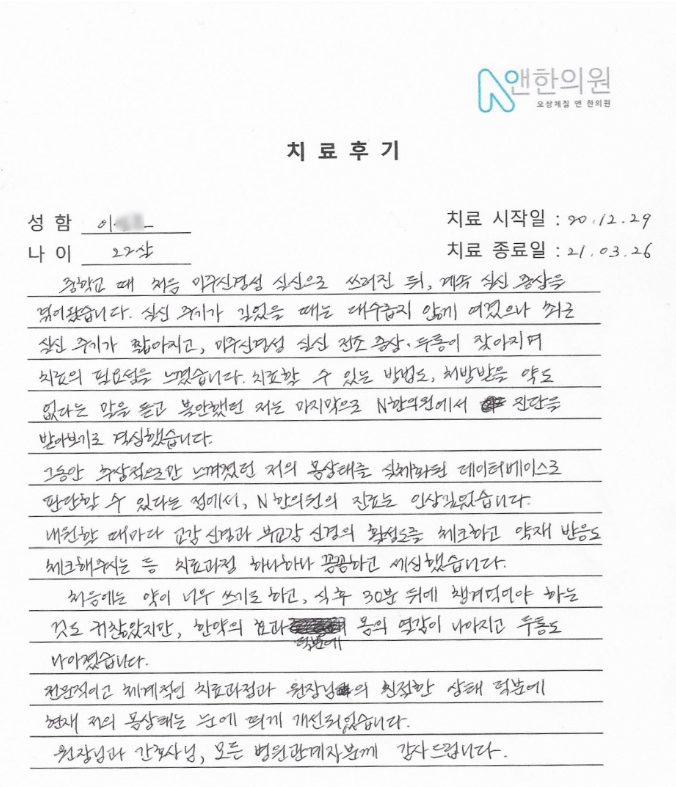 앤한의원
오상체질 앤 한의원
치 료 후 기
성 함 이
나 이 22살
치료 시작일 : 20.12.29
치료 종료일 : 21.03.26
중학교 때 처음 미주신경성 실신으로 쓰러진 뒤, 계속 실신 증상을
겪어왔습니다. 실신 주기가 길었을 때는 대수롭지 않게 여겼으나 최근
실신 주기가 짧아지고, 미주신경성 실신 전조 증상·두통이 잦아지며
치료의 필요성을 느꼈습니다. 치료할 수 있는 방법도, 처방받을 약도
없다는 말을 듣고 불안했던 저는 마지막으로 N한의원에서 진단을
받아보기로 결심했습니다.
그동안 추상적으로만 느껴졌던 저의 몸상태를 실체화된 데이터베이스로
판단할 수 있다는 점에서, N한의원의 진료는 인상깊었습니다.
내원할 때마다 교감 신경과 부교감 신경의 활성도를 체크하고 약재 반응도
체크해주시는 등 치료과정 하나하나 꼼꼼하고 세심했습니다.
처음에는 약이 너무 쓰기도 하고, 식후 30분 뒤에 챙겨먹어야 하는
것도 귀찮았지만, 한약의 효과 덕분에 몸의 열감이 나아지고 두통도
나아졌습니다.
전문적이고 체계적인 치료과정과 원장님의 친절한 상태 덕분에
현재 저의 몸상태는 눈에 띄게 개선되었습니다.
원장님과 간호사님, 모든 병원관계자분께 감사드립니다.